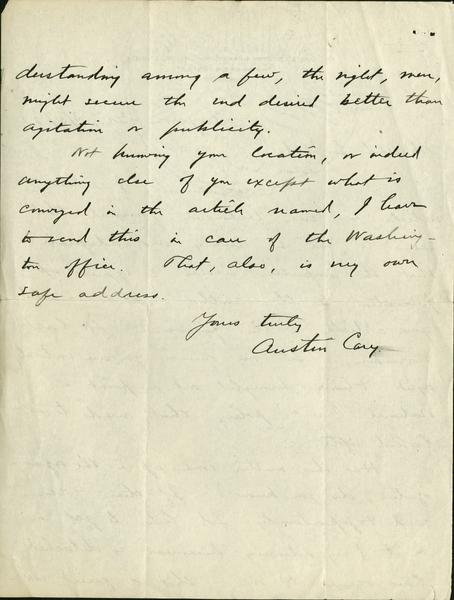 derstanding among a few, the right, men,
might secure the end desired better than
agitation or publicity.
Not knowing your location, or indeed
anything else of you except what is
conveyed in the article named, I have
to send this in care of the Washing-
ton office. That, also, is my own
safe address.
Yours truly
Austin Cary.